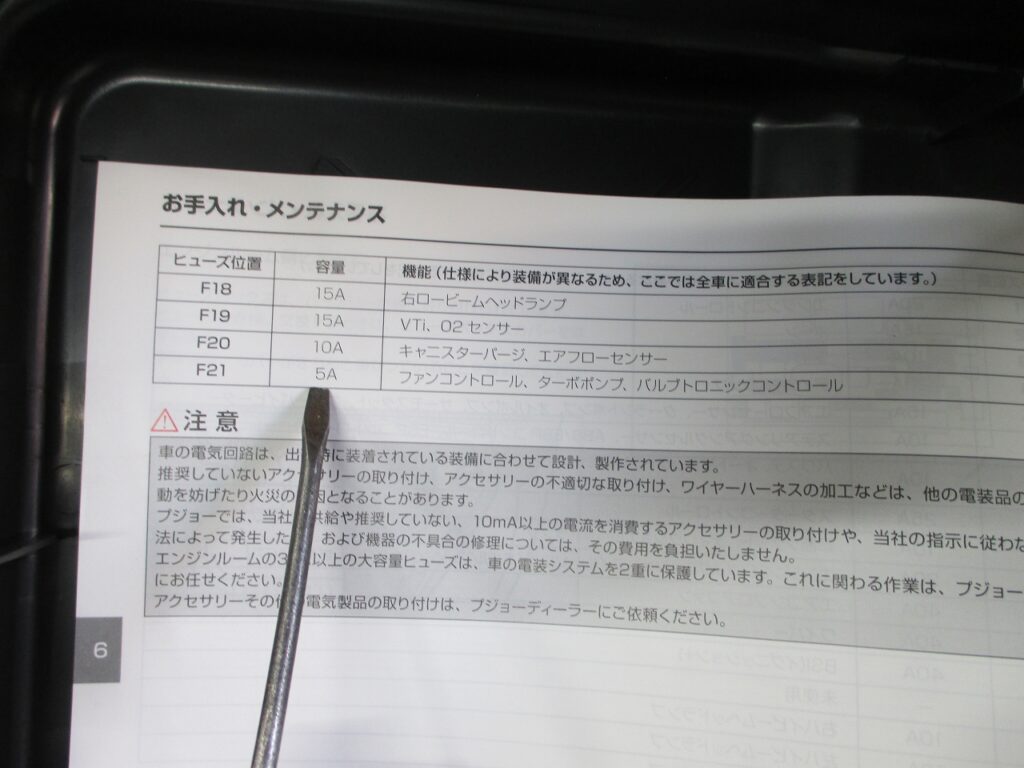 お手入れ・メンテナンス
ヒューズ位置 容量 機能（仕様により装備が異なるため、ここでは全車に適合する表記をしています。）
F18 15A 右ロービームヘッドランプ
F19 15A VTi、O2 センサー
F20 10A キャニスターパージ、エアフローセンサー
F21 5A ファンコントロール、ターボポンプ、バルブトロニックコントロール
注意
車の電気回路は、出 時に装着されている装備に合わせて設計、製作されています。
推奨していないアクセサリーの取り付け、アクセサリーの不適切な取り付け、ワイヤーハーネスの加工などは、他の電装品の
動を妨げたり火災の 因となることがあります。
プジョーでは、当社 供給や推奨していない、10mA以上の電流を消費するアクセサリーの取り付けや、当社の指示に従わな
法によって発生した 、および機器の不具合の修理については、その費用を負担いたしません。
エンジンルームの3 以上の大容量ヒューズは、車の電装システムを2重に保護しています。これに関わる作業は、プジョー
にお任せください。
アクセサリーその他 電気製品の取り付けは、プジョーディーラーにご依頼ください。
6